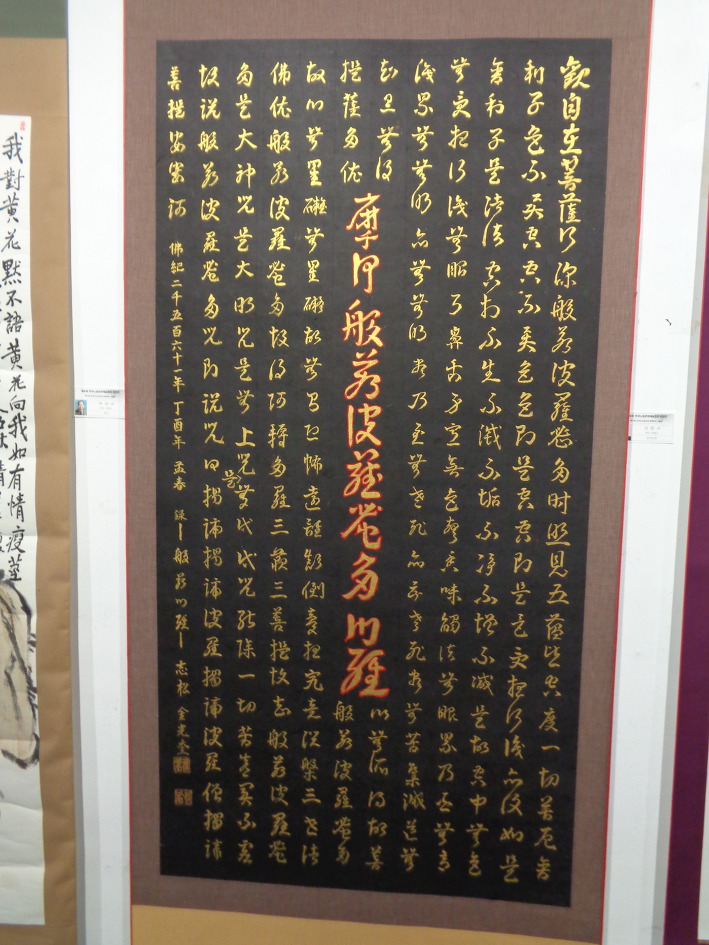 觀自在菩薩行深般若波羅蜜多時照見五蘊皆空度一切苦厄舍
利子色不異空空不異色色即是空空即是色受想行識亦復如是
舍利子是諸法空相不生不滅不垢不淨不增不減是故空中無色
無受想行識無眼耳鼻舌身意無色聲香味觸法無眼界乃至無意
識界無無明亦無無明盡乃至無老死亦無老死盡無苦集滅道無
智亦無得
以無所得故菩
摩訶般若波羅蜜多心經
提薩埵依
般若波羅蜜多
故心無罣礙無罣礙故無有恐怖遠離顛倒夢想究竟涅槃三世諸
佛依般若波羅蜜多故得阿耨多羅三藐三菩提故知般若波羅蜜
多是大神咒是大明咒是無上咒是無等等咒能除一切苦真實不虛
故說般若波羅蜜多咒即說咒曰揭諦揭諦波羅揭諦波羅僧揭諦
菩提娑婆訶 佛紀二千五百六十一年丁酉年孟春 錄 般若心經 志松 金光
我對黃花默不語黃花向我如有情